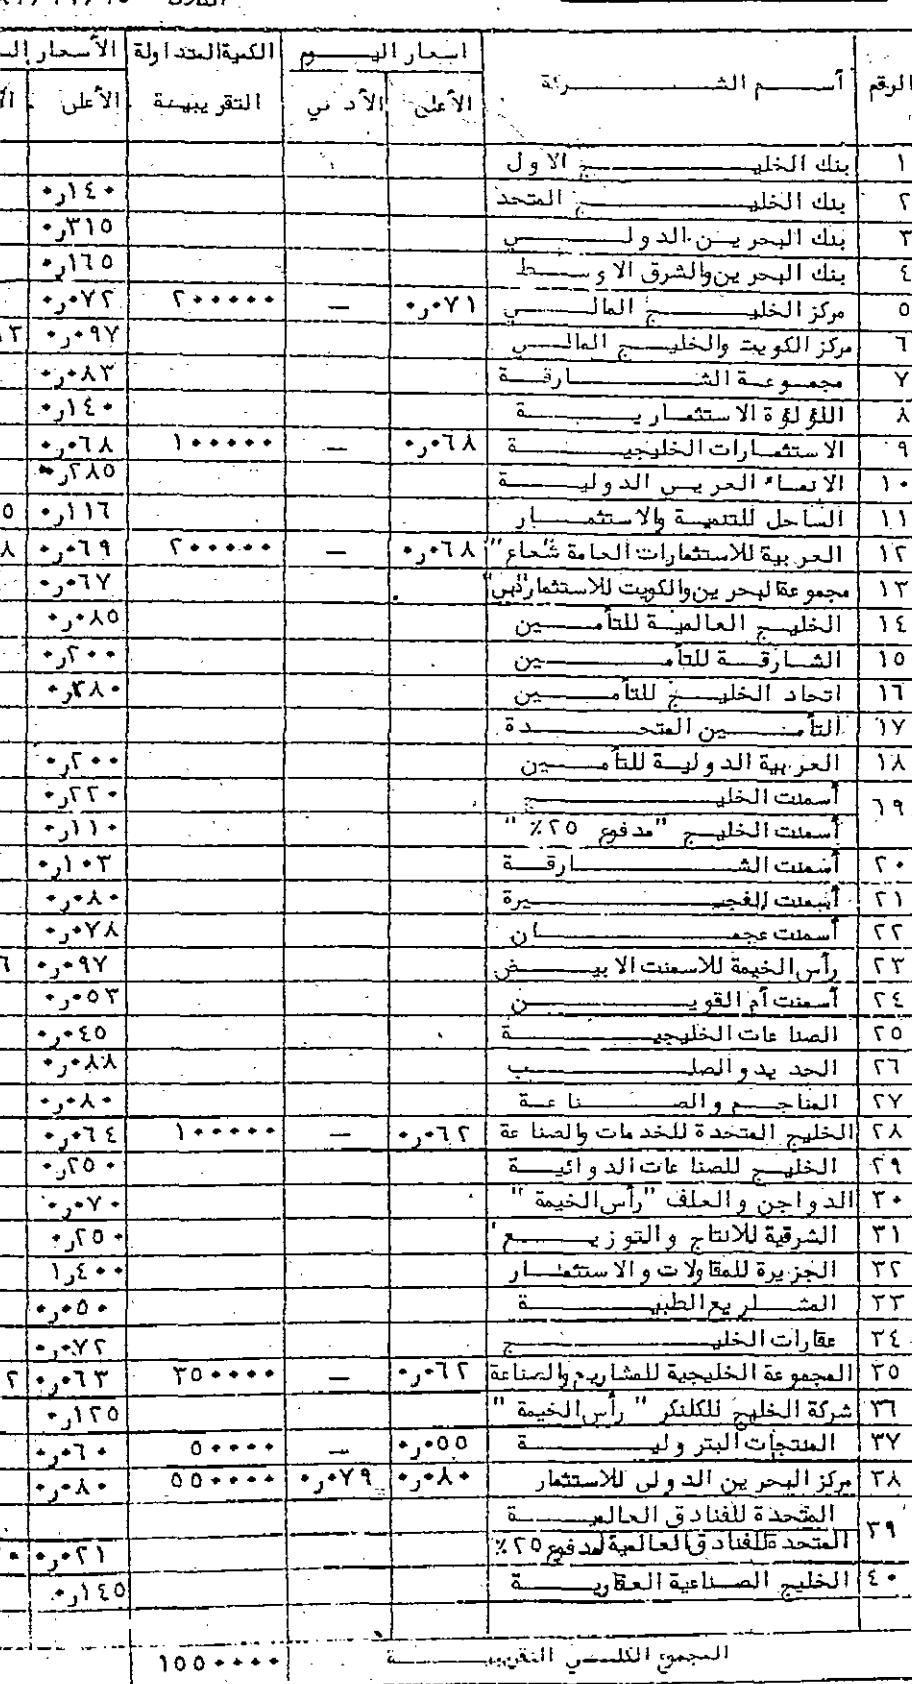 الرقم | أسم الشركة | اسعار اليوم | الكمية المتداولة التقريبية | الأسعار
الأعلى | الأدنى | الأعلى
١ | بنك الخليج الاول
٢ | بنك الخليج المتحد | ١٤٠ر٠
٣ | بنك البحرين الدولي | ٣١٥ر٠
٤ | بنك البحرين والشرق الاوسط | ١٦٥ر٠
٥ | مركز الخليج المالي | ٠٧١ر٠ | — | ٢٠٠٠٠٠ | ٠٧٢ر٠
٦ | مركز الكويت والخليج المالي | ٠٩٧ر٠
٧ | مجموعة الشارقة | ٠٨٣ر٠
٨ | اللؤلؤة الاستثمارية | ١٤٠ر٠
٩ | الاستثمارات الخليجية | ٠٦٨ر٠ | — | ١٠٠٠٠٠ | ٠٦٨ر٠
١٠ | الانماء العربي الدولية | ٢٨٥ر٠
١١ | الساحل للتنمية والاستثمار | ١١٦ر٠
١٢ | العربية للاستثمارات العامة "شعاع" | ٠٦٨ر٠ | — | ٢٠٠٠٠٠ | ٠٦٩ر٠
١٣ | مجموعة البحرين والكويت للاستثمار | ٠٦٧ر٠
١٤ | الخليج العالمية للتأمين | ٠٨٥ر٠
١٥ | الشارقة للتأمين | ٢٠٠ر٠
١٦ | اتحاد الخليج للتأمين | ٣٨٠ر٠
١٧ | التأمين المتحدة
١٨ | العربية الدولية للتأمين | ٢٠٠ر٠
١٩ | أسمنت الخليج | ٢٢٠ر٠
أسمنت الخليج "مدفوع ٢٥٪" | ١١٠ر٠
٢٠ | أسمنت الشارقة | ١٠٣ر٠
٢١ | أسمنت الفجيرة | ٠٨٠ر٠
٢٢ | أسمنت عجمان | ٠٧٨ر٠
٢٣ | رأس الخيمة للاسمنت الابيض | ٠٩٧ر٠
٢٤ | أسمنت أم القوين | ٠٥٣ر٠
٢٥ | الصناعات الخليجية | ٠٤٥ر٠
٢٦ | الحديد والصلب | ٠٨٨ر٠
٢٧ | المناجم والصناعة | ٠٨٠ر٠
٢٨ | الخليج المتحدة للخدمات والصناعة | ٠٦٢ر٠ | — | ١٠٠٠٠٠ | ٠٦٤ر٠
٢٩ | الخليج للصناعات الدوائية | ٢٥٠ر٠
٣٠ | الدواجن والعلف "رأس الخيمة" | ٠٧٠ر٠
٣١ | الشرقية للانتاج والتوزيع | ٢٥٠ر٠
٣٢ | الجزيرة للمقاولات والاستثمار | ٤٠٠ر١
٣٣ | المشاريع الطبية | ٠٥٠ر٠
٣٤ | عقارات الخليج | ٠٧٢ر٠
٣٥ | المجموعة الخليجية للمشاريع والصناعة | ٠٦٢ر٠ | — | ٣٥٠٠٠٠ | ٠٦٣ر٠
٣٦ | شركة الخليج للكلنكر "رأس الخيمة" | ١٢٥ر٠
٣٧ | المنتجات البترولية | ٠٥٥ر٠ | — | ٥٠٠٠٠ | ٠٦٠ر٠
٣٨ | مركز البحرين الدولي للاستثمار | ٠٨٠ر٠ | ٠٧٩ر٠ | ٥٥٠٠٠٠ | ٠٨٠ر٠
٣٩ | المتحدة للفنادق العالمية
المتحدة للفنادق العالمية مدفوع ٢٥٪ | ٠٢١ر٠
٤٠ | الخليج الصناعية العقارية | ١٤٥ر٠
المجموع الكلي التقريبية | ١٥٥٠٠٠٠